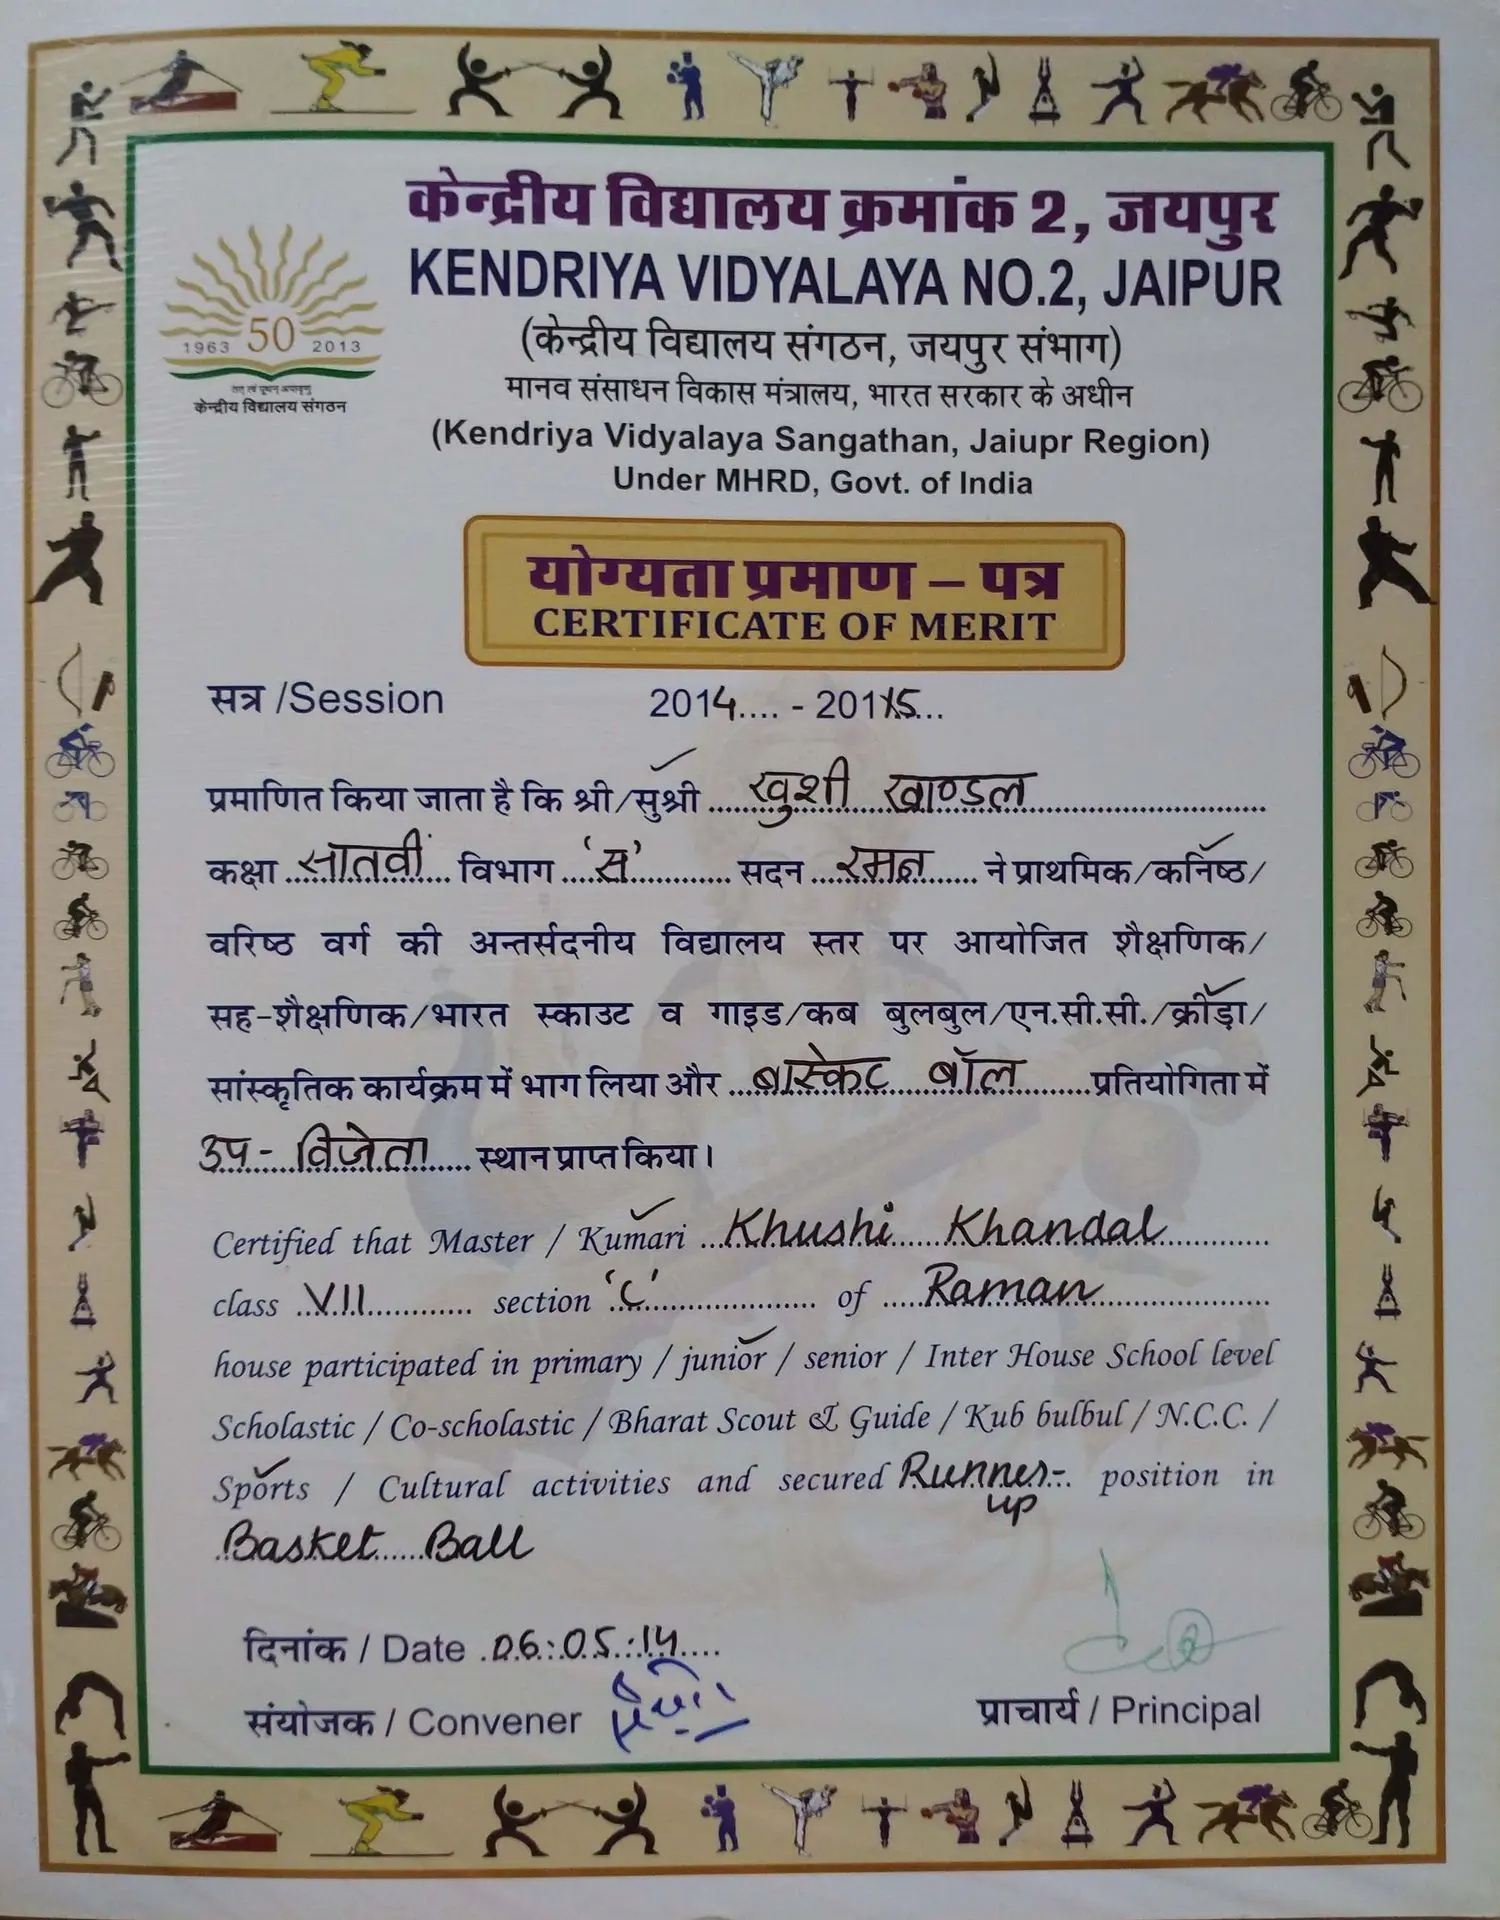 केन्द्रीय विद्यालय क्रमांक 2, जयपुर
KENDRIYA VIDYALAYA NO.2, JAIPUR
(केन्द्रीय विद्यालय संगठन, जयपुर संभाग)
मानव संसाधन विकास मंत्रालय, भारत सरकार के अधीन
(Kendriya Vidyalaya Sangathan, Jaiupr Region)
Under MHRD, Govt. of India
1963 50 2013
तत् त्वं पूषन् अपावृणु
केन्द्रीय विद्यालय संगठन
योग्यता प्रमाण – पत्र
CERTIFICATE OF MERIT
सत्र /Session 2014.... - 20115...
प्रमाणित किया जाता है कि श्री/सुश्री खुशी खाण्डल
कक्षा सातवीं विभाग 'स' सदन रमन ने प्राथमिक/कनिष्ठ/
वरिष्ठ वर्ग की अन्तर्सदनीय विद्यालय स्तर पर आयोजित शैक्षणिक/
सह-शैक्षणिक/भारत स्काउट व गाइड/कब बुलबुल/एन.सी.सी./क्रीड़ा/
सांस्कृतिक कार्यक्रम में भाग लिया और बास्केट बॉल प्रतियोगिता में
उप- विजेता स्थान प्राप्त किया।
Certified that Master / Kumari Khushi Khandal
class VII section 'C' of Raman
house participated in primary / junior / senior / Inter House School level
Scholastic / Co-scholastic / Bharat Scout & Guide / Kub bulbul / N.C.C. /
Sports / Cultural activities and secured Runner-up position in
Basket Ball
दिनांक / Date 06:05:14
संयोजक / Convener
प्राचार्य / Principal